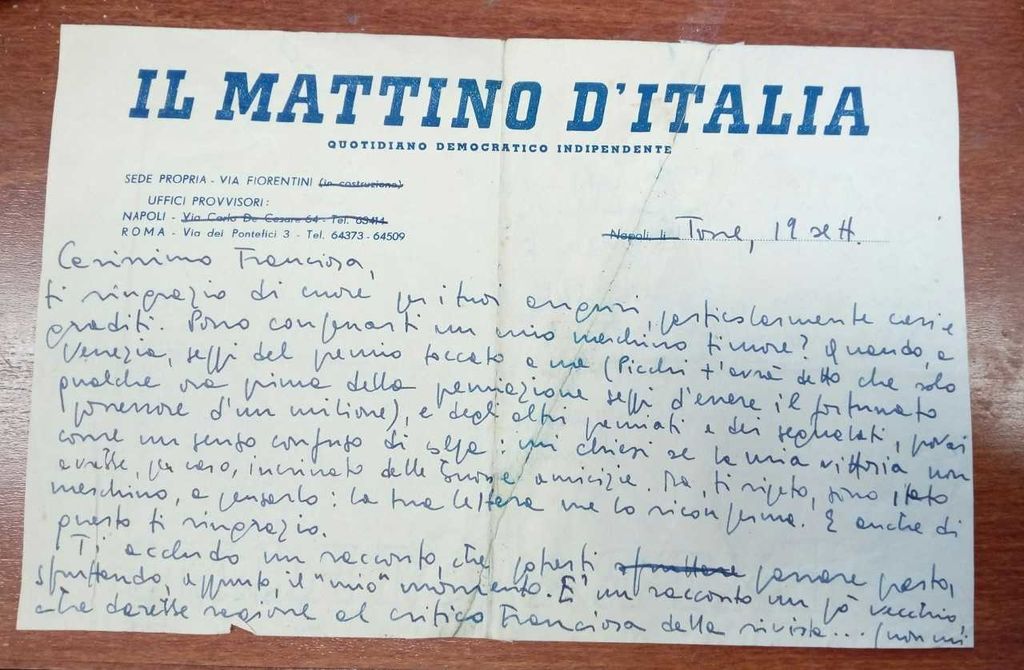 IL MATTINO D'ITALIA
QUOTIDIANO DEMOCRATICO INDIPENDENTE
SEDE PROPRIA - VIA FIORENTINI (in costruzione)
UFFICI PROVVISORI:
NAPOLI - Via Carlo De Cesare 64 - Tel. 63414
ROMA - Via dei Pontefici 3 - Tel. 64373 - 64509
Napoli, li Torre, 19 sett.
Carissimo Franciosa,
ti ringrazio di cuore per i tuoi auguri, particolarmente cari e
graditi. Posso confessarti un mio meschino timore? Quando, a
Venezia, seppi del premio toccato a me (Picchi t'avrà detto che solo
qualche ora prima della premiazione seppi d'essere il fortunato
possessore d'un milione), e degli altri premiati e dei segnalati, provai
come un senso confuso di colpa: mi chiesi se la mia vittoria non
avesse, per caso, incrinato delle buone amicizie. Ma, ti ripeto, sono stato
meschino, a pensarlo: la tua lettera me lo riconferma. E anche di
questo ti ringrazio.
Ti accludo un racconto, che potresti sfruttare passare presto,
sfruttando, appunto, il "mio" momento. E' un racconto un pò vecchio
che darebbe ragione al critico Franciosa della rivista... (non mi